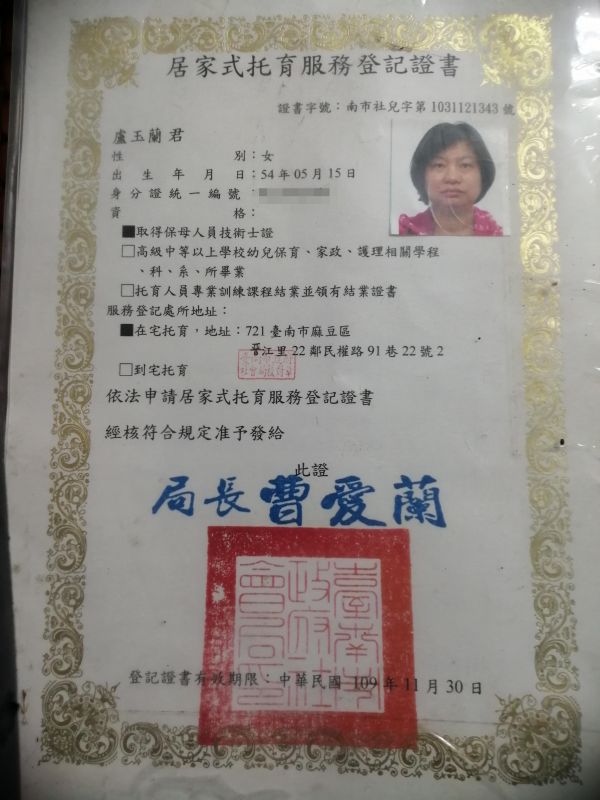 居家式托育服務登記證書
證書字號：南市社兒字第1031121343號
盧玉蘭君
性別：女
出生年月日：54年05月15日
身分證統一編號
資格：
■取得保母人員技術士證
□高級中等以上學校幼兒保育、家政、護理相關學程
、科、系、所畢業
□托育人員專業訓練課程結業並領有結業證書
服務登記處所地址：
■在宅托育，地址：721臺南市麻豆區
晋江里22鄰民權路91巷22號2
□到宅托育
依法申請居家式托育服務登記證書
經核符合規定准予發給
此證
局長曹愛蘭
臺南市政府社會局印
登記證書有效期限：中華民國109年11月30日